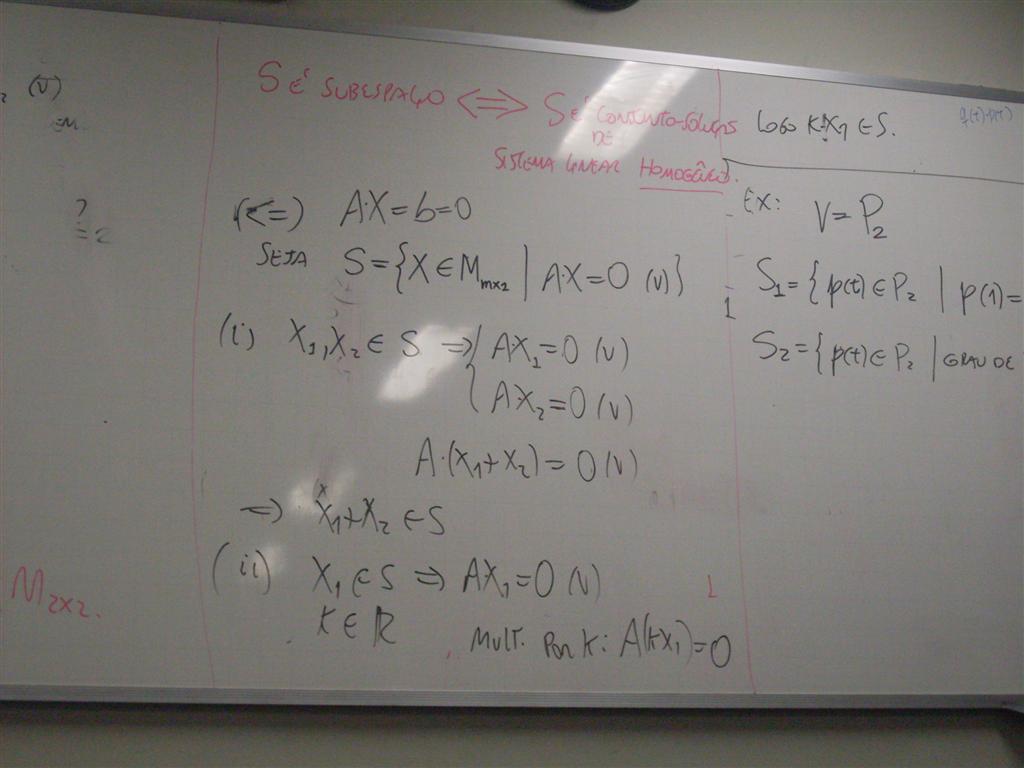 (V)
?
= 2
M2x2.
S É SUBESPAÇO <=> S É CONJUNTO-SOLUÇÃS
DE
SISTEMA LINEAR HOMOGÊNEO.
(<=) A·X=b=0
SEJA S={X∈Mmx2 | A·X=0 (V)}
(i) X1,X2 ∈ S => { AX1=0 (V)
AX2=0 (V)
A·(X1+X2)=0 (V)
=> X1+X2 ∈ S
(ii) X1 ∈ S => AX1=0 (V)
K ∈ ℝ
MULT. POR K: A(kX1)=0
LOGO K·X1 ∈ S.
EX: V=P2
S1={p(t)∈P2 | p(1)=
S2={p(t)∈P2 | GRAU DE